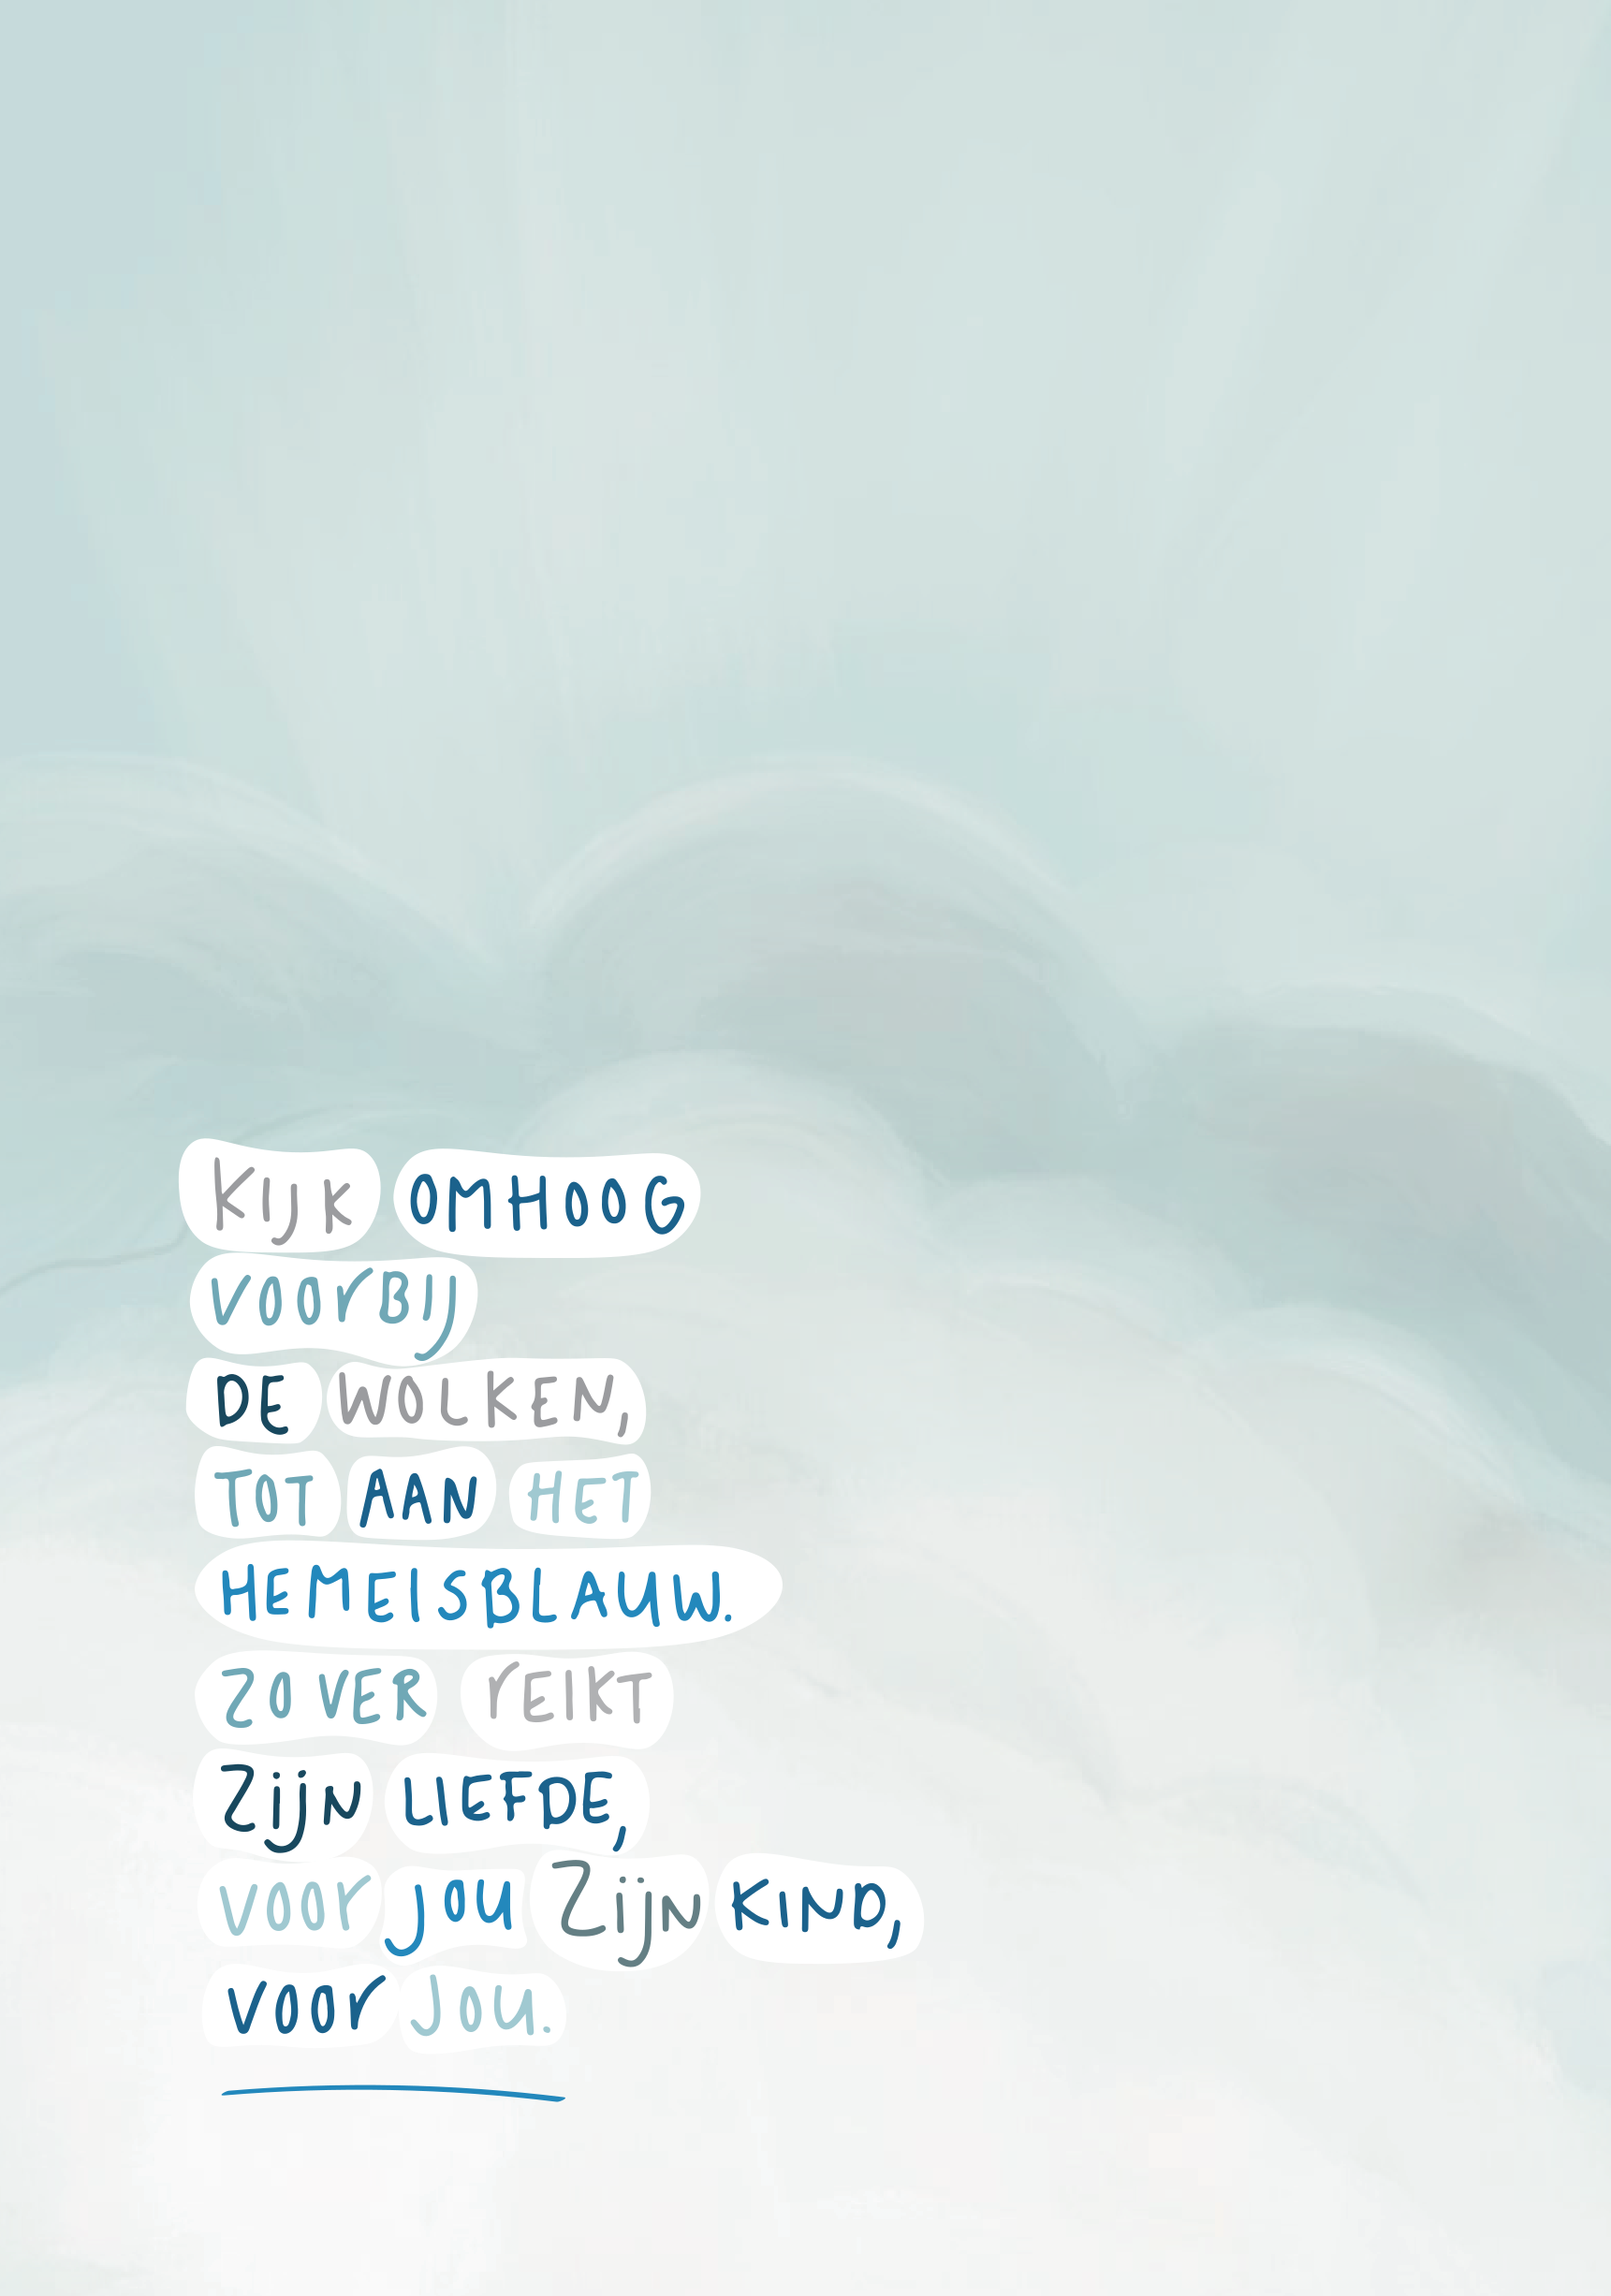 Kijk OMHOOG
voorBIJ
DE WOLKEN,
TOT AAN HET
HEMElSBLAUW.
ZOVER rEIKT
Zijn LIEFDE,
voor jou Zijn KIND,
voor jou.